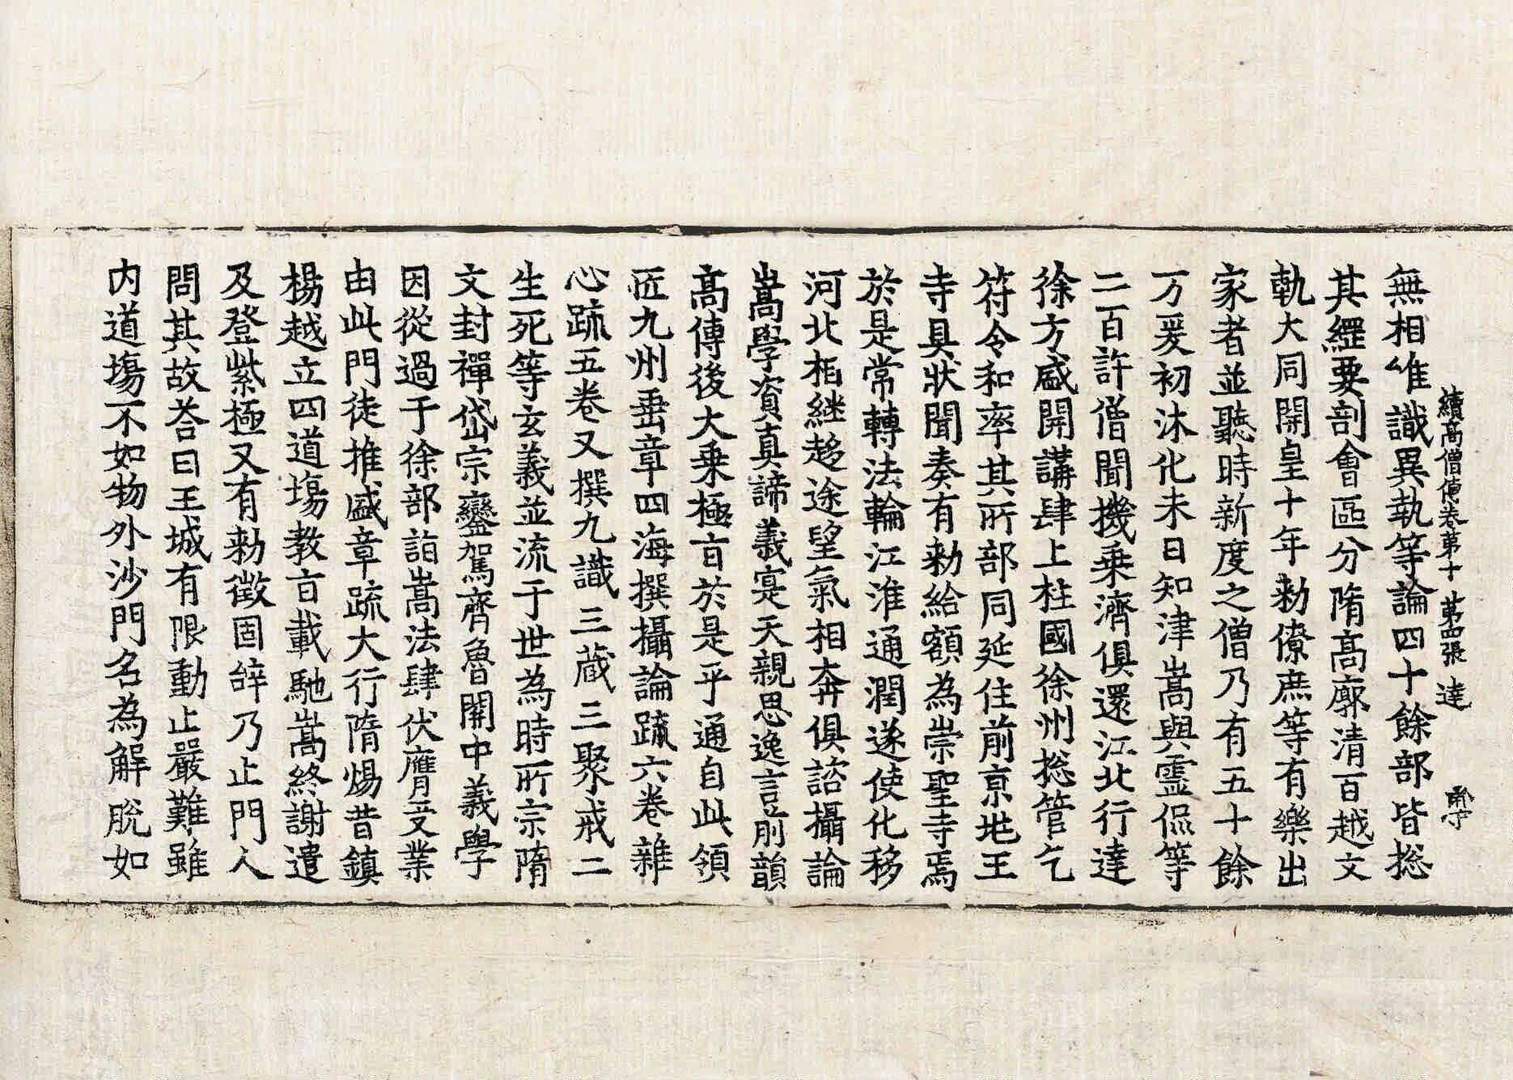 續高僧傳卷第十 第四張 達
無相唯識異執等論四十餘部皆揔
其綱要剖會區分隋高廓清百越文
軌大同開皇十年勑僚庶等有樂出
家者並聽時新度之僧乃有五十餘
万爰初沐化未日知津嵩與靈侃等
二百許僧聞機乗濟俱還江北行達
徐方盛開講肆上柱國徐州揔管乞
符令和率其所部同延住前京地王
寺具狀聞奏有勑給額為崇聖寺焉
於是常轉法輪江淮通潤遂使化移
河北相継趍途望氣相奔俱諮攝論
嵩學資真諦義寔天親思逸言前韻
高傳後大乗極旨於是乎通自此領
匠九州垂章四海撰攝論䟽六卷雜
心䟽五卷又撰九識三蔵三聚戒二
生死等玄義並流于世為時所宗隋
文封禪岱宗鑾駕齊魯開中義學
因從過于徐部詣嵩法肆伏膺受業
由此門徒推盛章疏大行隋煬昔鎮
楊越立四道塲教旨載馳嵩終謝遣
及登紫極又有勑徴固辤乃止門人
問其故荅曰王城有限動止嚴難雖
内道塲不如物外沙門名為解脫如